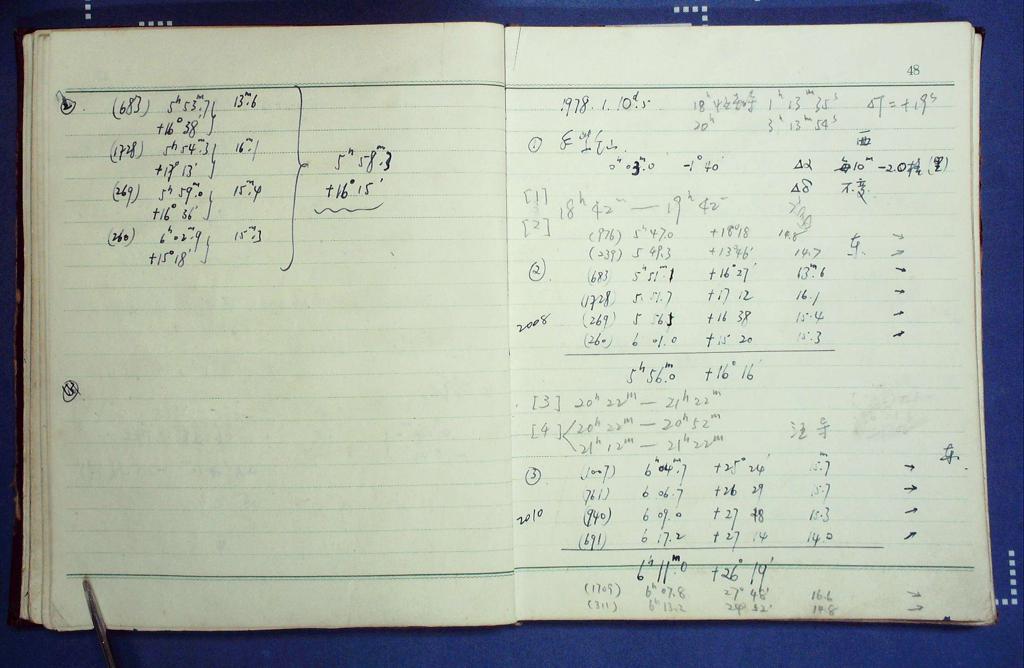 ② (683) 5ʰ 53ᵐ.7 13ᵐ.6
+16° 38′
(1728) 5ʰ 54ᵐ.3 16ᵐ.1
+17° 13′
5ʰ 58ᵐ.3
(269) 5ʰ 59ᵐ.0 15ᵐ.4
+16° 15′
+16° 36′
(260) 6ʰ 02ᵐ.9 15ᵐ.3
+15° 18′
48
1978. 1. 10ᵈ.5 18ʰ 1ʰ 13ᵐ 35ˢ ΔT = +19ˢ
20ʰ 3ʰ 13ᵐ 54ˢ
① 西
0ʰ 03ᵐ.0 -1° 40′ Δα 每10ᵐ -2.0格
Δδ 不变
[1] 18ʰ 42ᵐ — 19ʰ 42ᵐ
[2]
(976) 5ʰ 47.0 +18° 18 14.8 东 →
(239) 5 49.3 +13° 46′ 14.7 →
② (683) 5ʰ 51ᵐ.1 +16° 27′ 13ᵐ.6 →
(1728) 5 51.7 +17 12 16.1 →
2008 (269) 5 56.5 +16 38 15.4 →
(260) 6 01.0 +15 20 15.3 →
5ʰ 56ᵐ.0 +16° 16′
[3] 20ʰ 22ᵐ — 21ʰ 22ᵐ
[4] 20ʰ 22ᵐ — 20ʰ 52ᵐ
21ʰ 12ᵐ — 21ʰ 22ᵐ
东
③ (1007) 6ʰ 04ᵐ.7 +25° 24′ 15ᵐ.7 →
(761) 6 06.7 +26 29 15.7 →
2010 (940) 6 09.0 +27 48 15.3 →
(691) 6 17.2 +27 14 14.0 →
6ʰ 11ᵐ.0 +26° 19′
(1709) 6ʰ 07.8 27° 48′ 16.6 →
(311) 6ʰ 13.2 24° 52′ 14.8 →